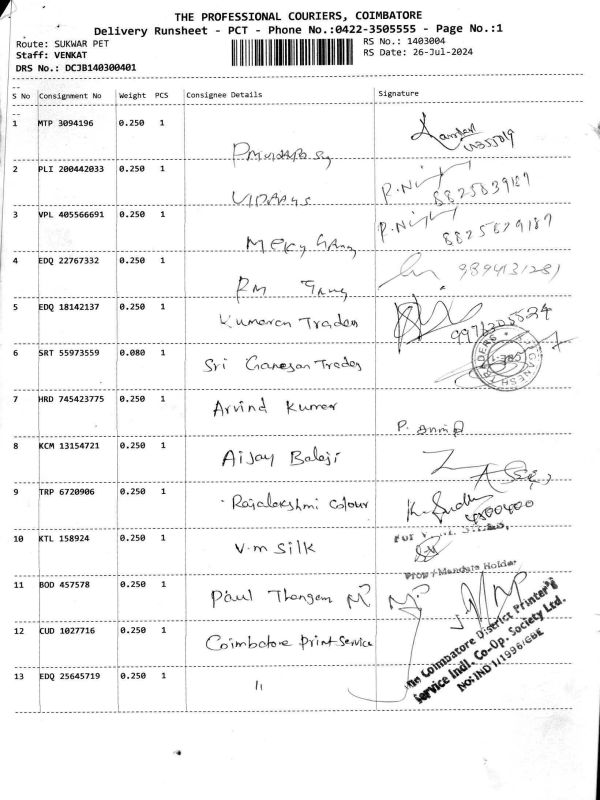 THE PROFESSIONAL COURIERS, COIMBATORE
Delivery Runsheet - PCT - Phone No.:0422-3505555 - Page No.:1
Route: SUKWAR PET
RS No.: 1403004
Staff: VENKAT
RS Date: 26-Jul-2024
DRS No.: DCJB140300401
--
S No Consignment No Weight PCS Consignee Details Signature
--
1 MTP 3094196 0.250 1
2 PLI 200442033 0.250 1 P.Ni
8825839187
3 VPL 405566691 0.250 1 P.Ni
8825829187
4 EDQ 22767332 0.250 1 9894131281
5 EDQ 18142137 0.250 1 Kumaran Trades
6 SRT 55973559 0.080 1 Sri Ganesan Trades
SRI GANESH TRADERS
7 HRD 745423775 0.250 1 Arvind Kumar
8 KCM 13154721 0.250 1 Aijay Balaji
9 TRP 6720906 0.250 1 Rajalakshmi Colour
4300400
10 KTL 158924 0.250 1 V.m Silk
Prop / Mandate Holder
11 BOD 457578 0.250 1 Paul Thangam
12 CUD 1027716 0.250 1 Coimbatore Print Service
The Coimbatore District Printer's
Service Indl. Co-Op. Society Ltd.
No: IND 1/1996/CBE
13 EDQ 25645719 0.250 1 "